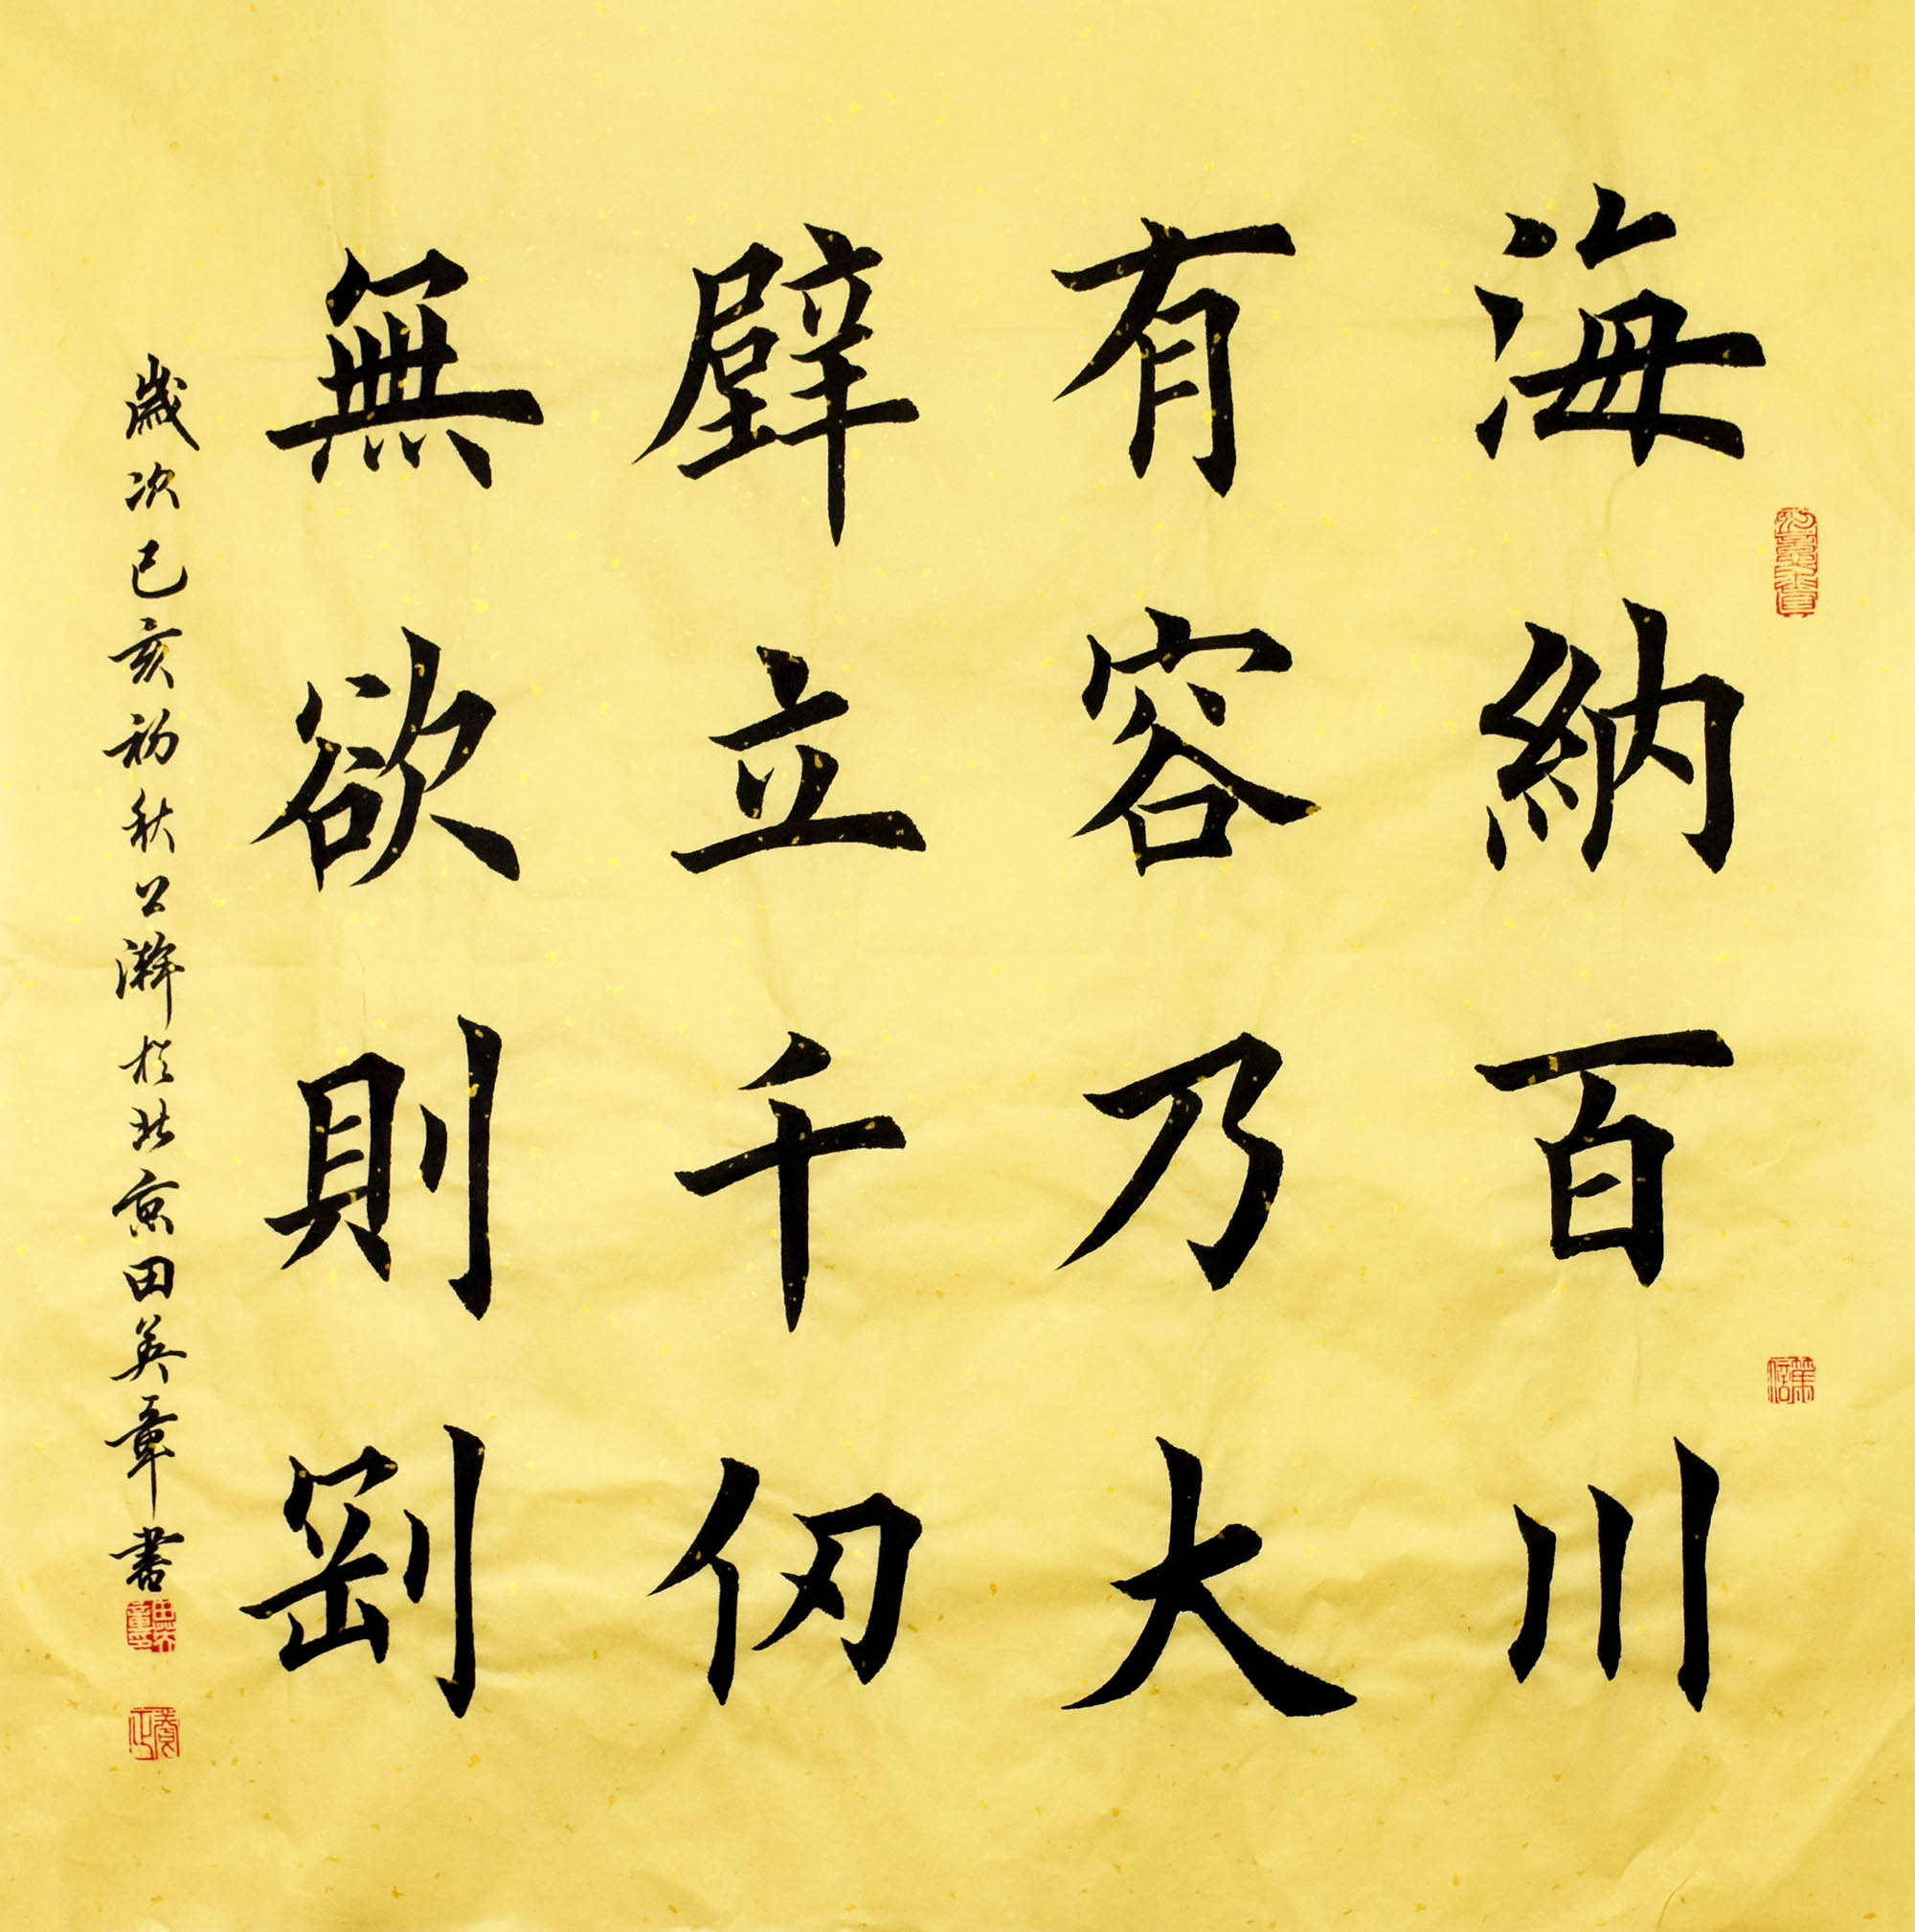 海納百川
有容乃大
壁立千仞
無欲則剛
歲次己亥初秋公瀚於北京田英章書